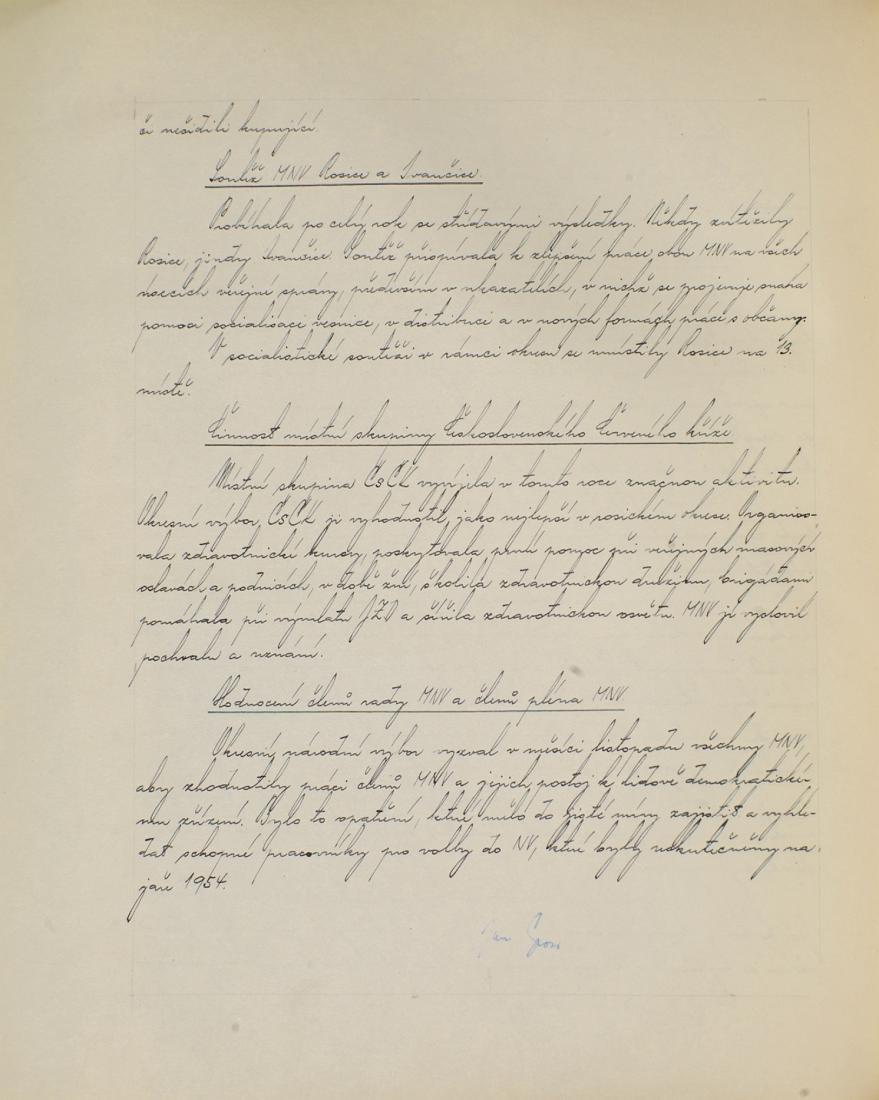 či nešidili kupující.
Soutěž MNV Rosice a Ivančice.
Probíhala po celý rok se střídavými výsledky. Někdy zvítězily
Rosice, jindy Ivančice. Soutěž přispívala k zlepšení práce obou MNV na všech
úsecích veřejné správy, především v ukazatelích, v nichž se projevuje snaha
pomoci socialisaci vesnice, v distribuci a v nových formách práce s občany.
V socialistické soutěži v rámci okresu se umístily Rosice na 13.
místě.
Činnost místní skupiny Československého Červeného kříže.
Místní skupina ČsČK vyvíjela v tomto roce značnou aktivitu.
Okresní výbor ČsČK ji vyhodnotil, jako nejlepší v rosickém okrese. Organiso-
vala zdravotnické kursy, poskytovala první pomoc při veřejných masových
oslavách a podnicích, v době žní, školila zdravotnickou družinu, brigádami
pomáhala při výmlatu JZD a šířila zdravotnickou osvětu. MNV jí vyslovil
pochvalu a uznání.
Hodnocení členů rady MNV a členů pléna MNV
Okresní národní výbor vyzval v měsíci listopadu všechny MNV,
aby zhodnotily práci členů MNV a jejich postoj k lidově demokratické-
mu zřízení. Bylo to opatření, které mělo do jisté míry zajistit a vyhle-
dat schopné pracovníky pro volby do NV, které byly uskutečněny na
jaře 1954.